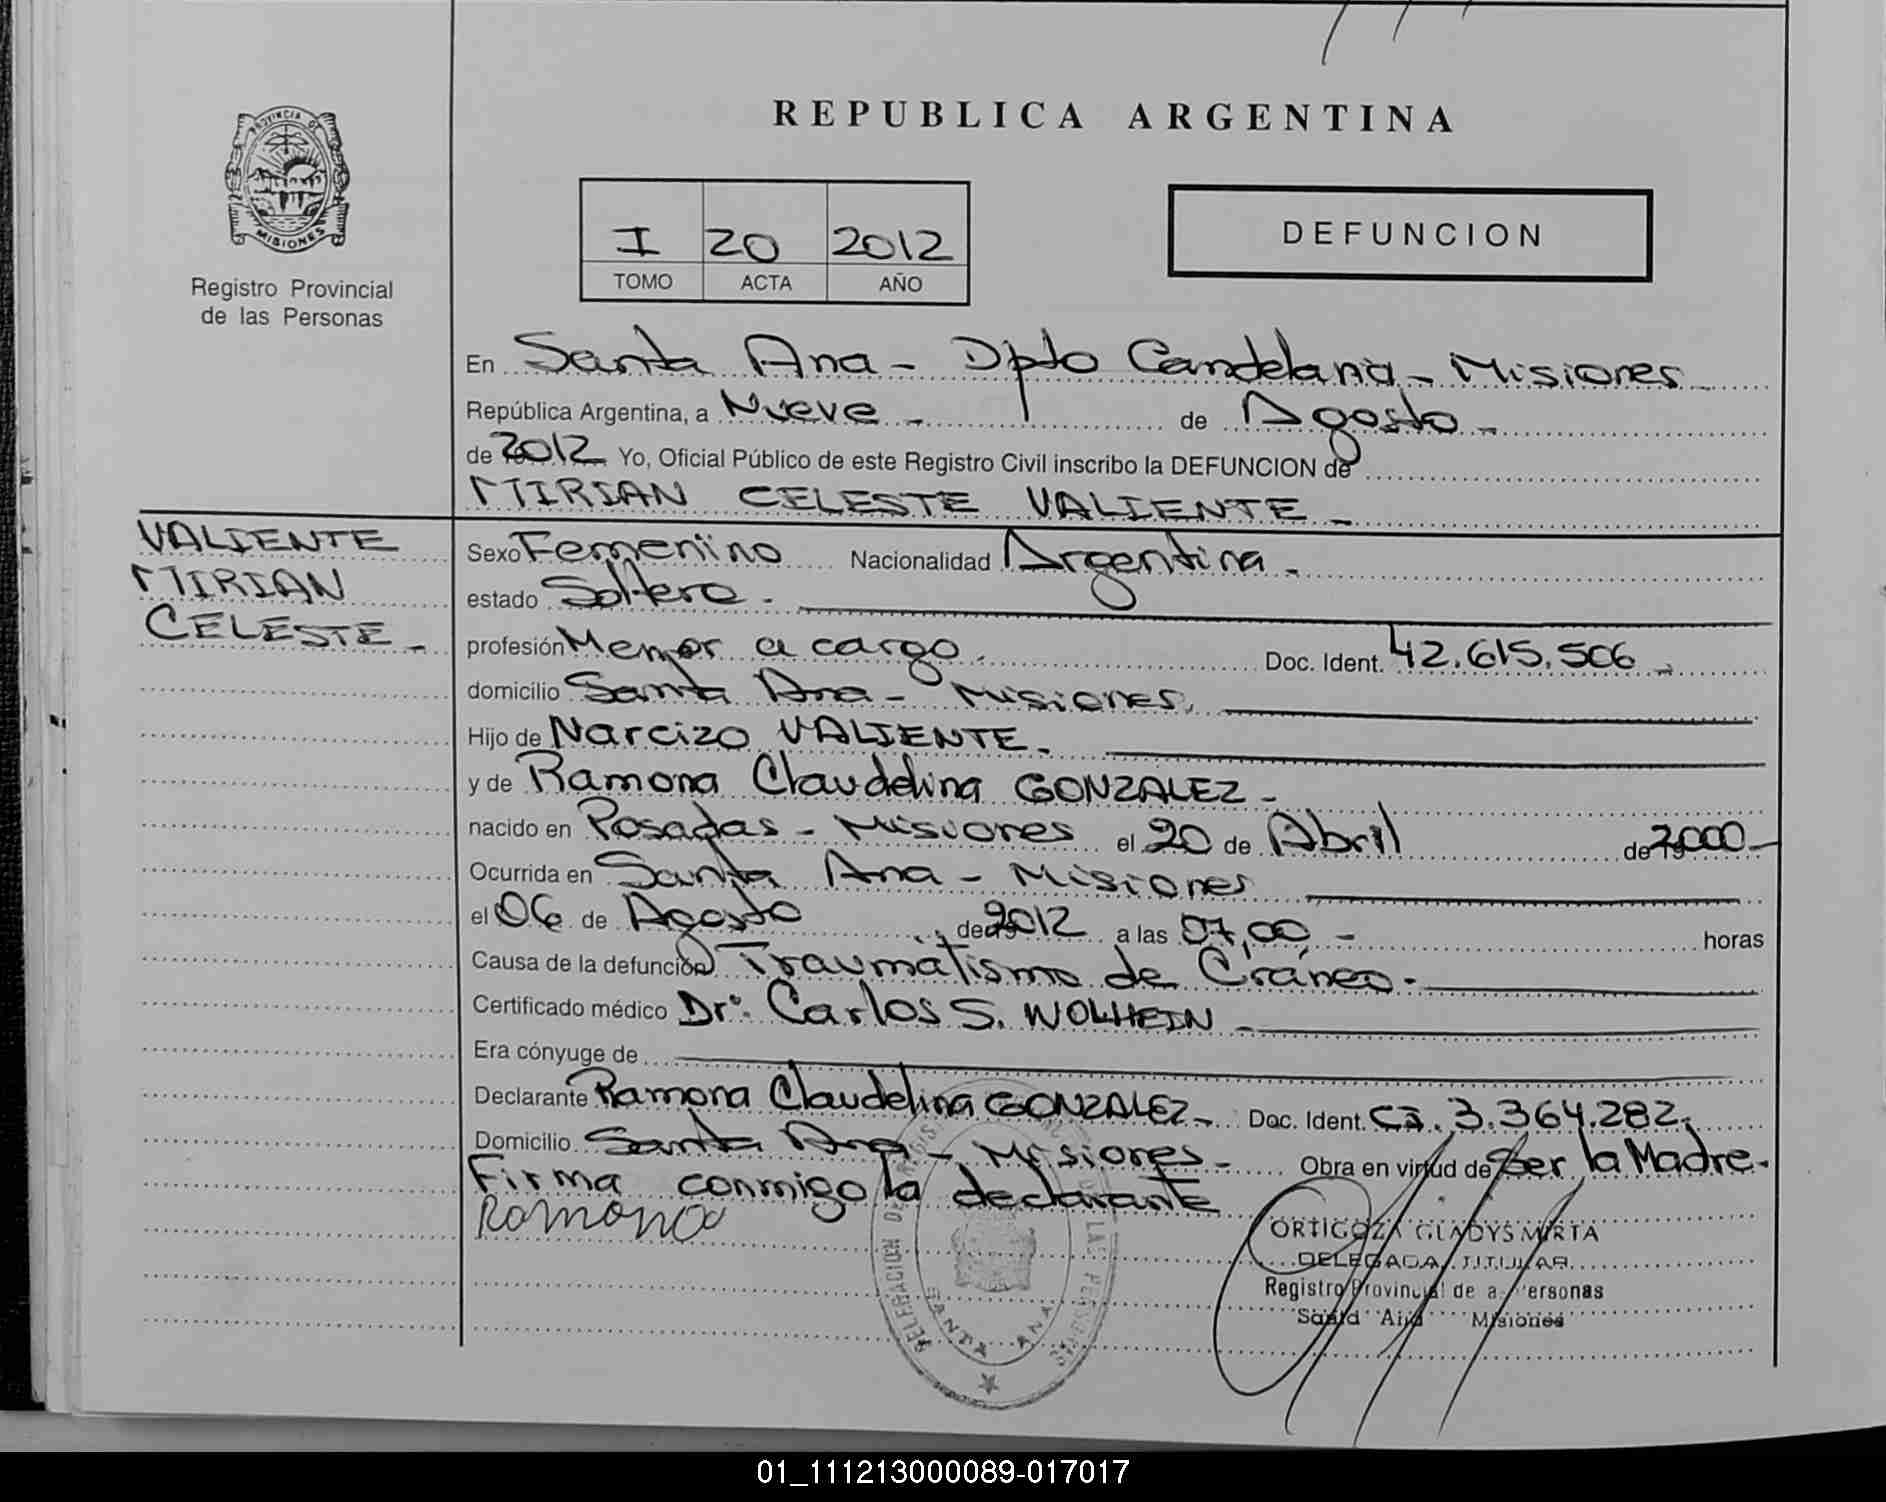 REPUBLICA ARGENTINA
PROVINCIA DE
MISIONES
Registro Provincial
de las Personas
I 20 2012
TOMO ACTA AÑO
DEFUNCION
En Santa Ana - Dpto Candelaria - Misiones
República Argentina, a Nueve - de Agosto -
de 2012 Yo, Oficial Público de este Registro Civil inscribo la DEFUNCION de
MIRIAN CELESTE VALIENTE -
VALIENTE
MIRIAN
CELESTE -
Sexo Femenino Nacionalidad Argentina -
estado Soltera -
profesión Menor a cargo. Doc. Ident. 42.615.506 -
domicilio Santa Ana - Misiones.
Hijo de Narcizo VALIENTE -
y de Ramona Claudelina GONZALEZ -
nacido en Posadas - Misiones el 20 de Abril de 2000 -
Ocurrida en Santa Ana - Misiones
el 06 de Agosto de 2012 a las 07,00 - horas
Causa de la defunción Traumatismo de Cráneo -
Certificado médico Dr: Carlos S. WOLHEIN -
Era cónyuge de
Declarante Ramona Claudelina GONZALEZ - Doc. Ident. CI. 3.364.282.
Domicilio Santa Ana - Misiones - Obra en virtud de Ser la Madre.
Firma conmigo la declarante
Ramona
ORTIGOZA GLADYS MIRTA
DELEGADA TITULAR
Registro Provincial de a Personas
Santa Ana Misiones
DELEGACION
LAS PERSONAS
SANTA ANA
01_111213000089-017017